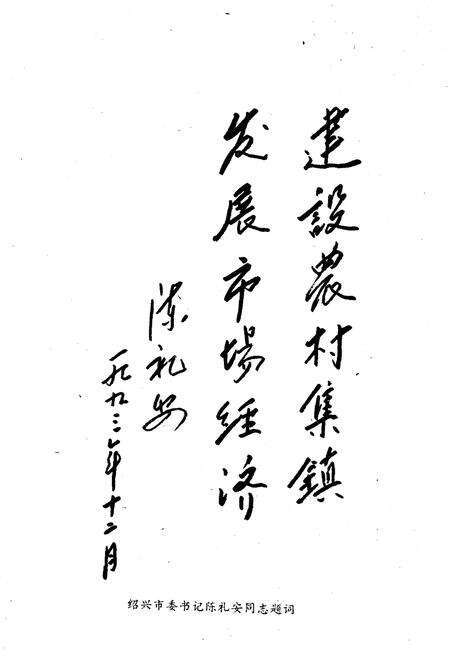 建設農村集鎮
发展市場经济
陈礼安
一九九三年十二月
绍兴市委书记陈礼安同志题词